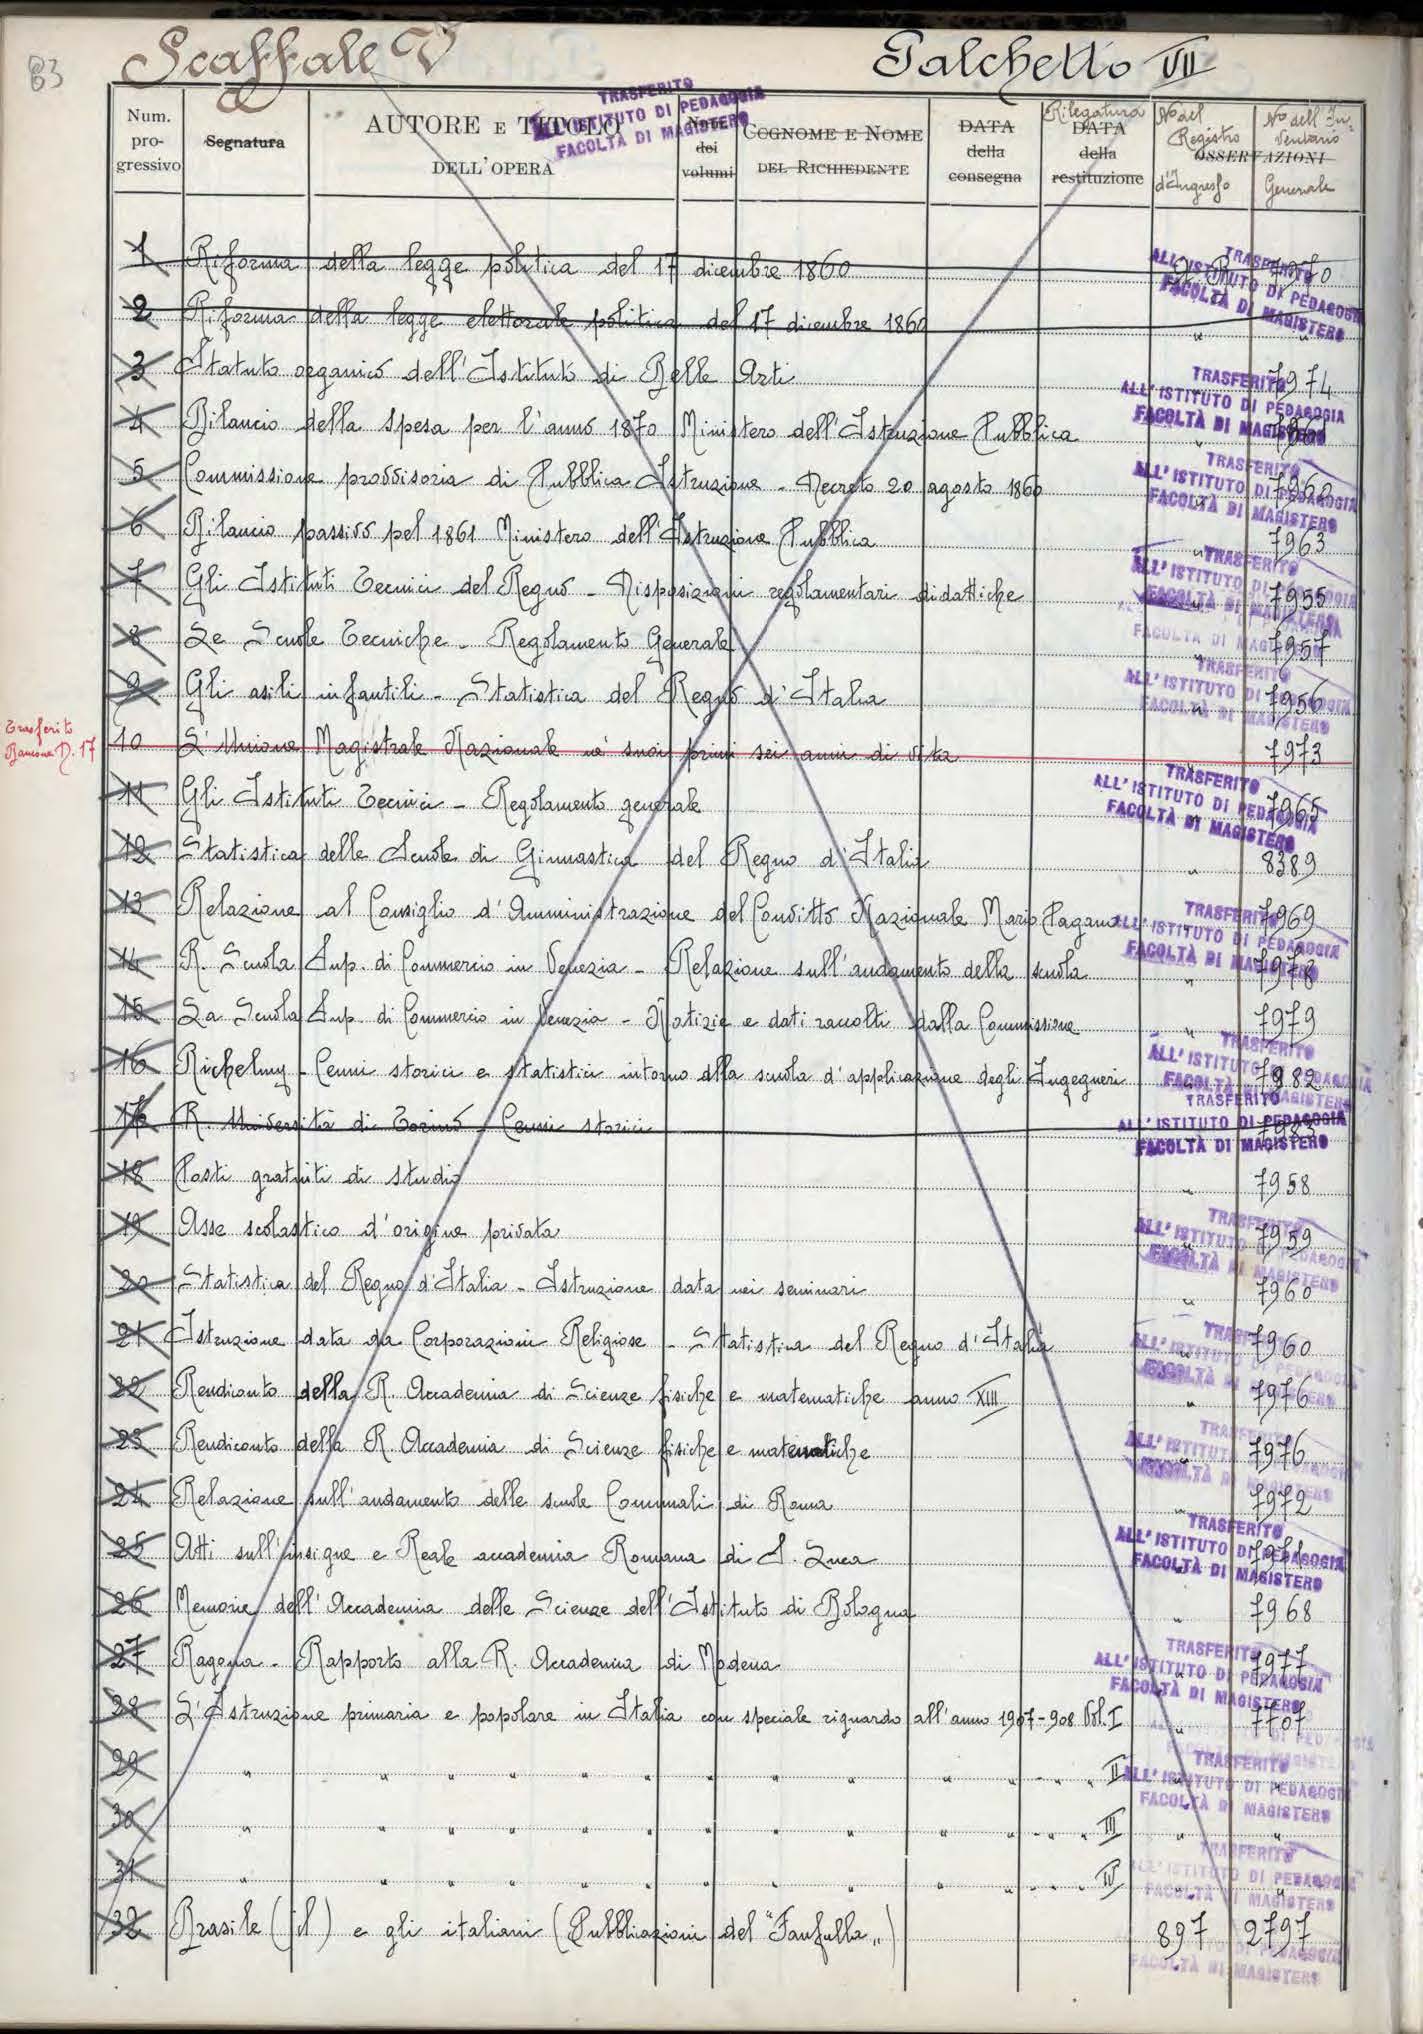 83
Scaffale V Palchetto VII
TRASFERITO
ALL'ISTITUTO DI PEDAGOGIA
FACOLTÀ DI MAGISTERO
Num. progressivo Segnatura AUTORE E TITOLO DELL'OPERA Num. dei volumi COGNOME E NOME DEL RICHIEDENTE DATA della consegna Rilegatura DATA della restituzione No del Registro d'Ingresso OSSERVAZIONI No dell'Inventario Generale
1 Riforma della legge politica del 17 dicembre 1860 7970
2 Riforma della legge elettorale politica del 17 dicembre 1860 " "
3 Statuto organico dell'Istituto di Belle Arti 7974
4 Bilancio della spesa per l'anno 1870 Ministero dell'Istruzione Pubblica "
5 Commissione provvisoria di Pubblica Istruzione - Decreto 20 agosto 1860 "
6 Bilancio passivo pel 1861 Ministero dell'Istruzione Pubblica " 7963
7 Gli Istituti Tecnici del Regno - Disposizioni regolamentari didattiche " 7955
8 Le Scuole Tecniche - Regolamento Generale " 7957
9 Gli asili infantili - Statistica del Regno d'Italia " 7956
Trasferito
Bancone D. 17
10 L'Unione Magistrale Nazionale ne' suoi primi sei anni di vita " 7973
11 Gli Istituti Tecnici - Regolamento generale " 7965
12 Statistica delle Scuole di Ginnastica del Regno d'Italia " 8389
13 Relazione al Consiglio d'Amministrazione del Convitto Nazionale Mario Pagano 7969
14 R. Scuola Sup. di Commercio in Venezia - Relazione sull'andamento della scuola " 7978
15 La Scuola Sup. di Commercio in Venezia - Notizie e dati raccolti dalla Commissione " 7979
16 Richelmy - Cenni storici e statistici intorno alla scuola d'applicazione degli Ingegneri " 7982
17 R. Università di Torino - Cenni storici 7983
18 Posti gratuiti di studio " 7958
19 Asse scolastico d'origine privata " 7959
20 Statistica del Regno d'Italia - Istruzione data nei seminari " 7960
21 Istruzione data da Corporazioni Religiose - Statistica del Regno d'Italia " 7960
22 Rendiconto della R. Accademia di Scienze fisiche e matematiche anno XIII " 7976
23 Rendiconto della R. Accademia di Scienze fisiche e matematiche " 7976
24 Relazione sull'andamento delle scuole Comunali di Roma " 7972
25 Atti sull'insigne e Reale accademia Romana di S. Luca "
26 Memorie dell'Accademia delle Scienze dell'Istituto di Bologna " 7968
27 Ragona - Rapporto alla R. Accademia di Modena " 7977
28 L'Istruzione primaria e popolare in Italia con speciale riguardo all'anno 1907-908 Vol. I " 7707
29 " " " " " " " " " " " " - " " II " "
30 " " " " " " " " " " " " - " " III " "
31 " " " " " " " " " " " " - " " IV " "
32 Brasile (Il) e gli italiani (Pubblicazioni del "Fanfulla„) 897 2797
TRASFERITO
ALL'ISTITUTO DI PEDAGOGIA
FACOLTÀ DI MAGISTERO